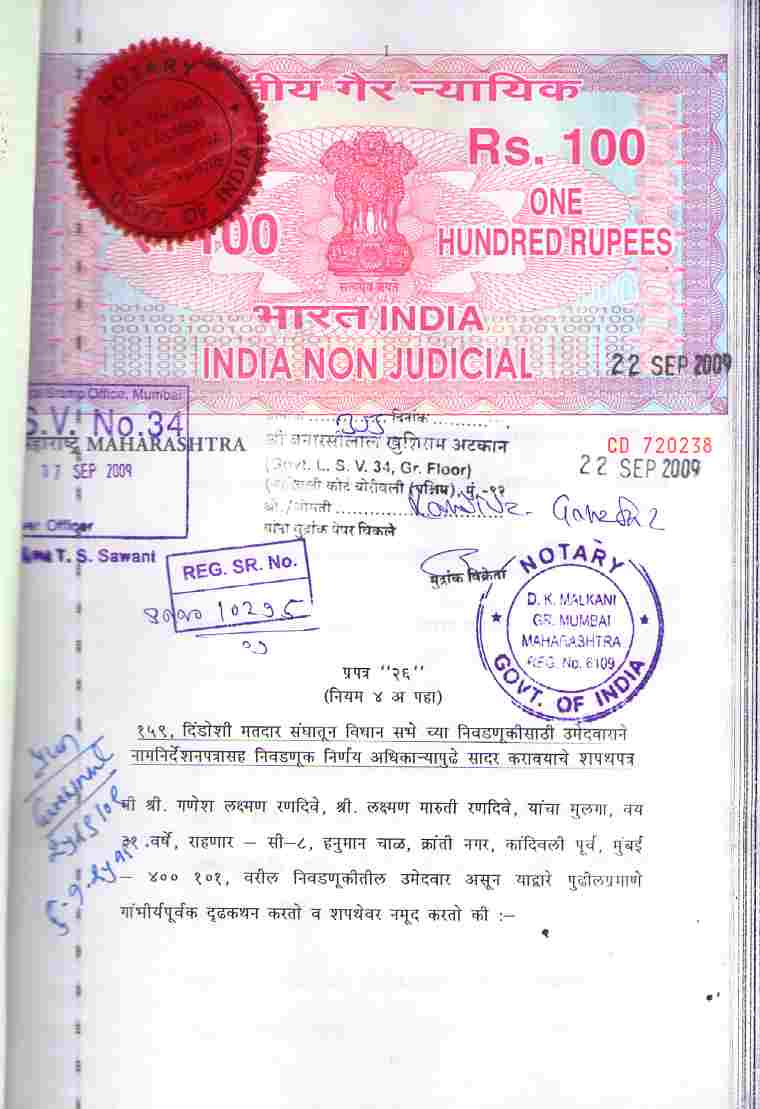 NOTARY
GOVT. OF INDIA
तीय गैर न्यायिक
Rs. 100
100
ONE
HUNDRED RUPEES
सत्यमेव जयते
भारत INDIA
INDIA NON JUDICIAL
22 SEP 2009
Stamp Office, Mumbai
S.V. No.34
महाराष्ट्र MAHARASHTRA
17 SEP 2009
Officer
T. S. Sawant
दिनांक
श्री बनारसीलाल खुशिराम अटकान
(Govt. L. S. V. 34, Gr. Floor)
कोर्ट बोरीवली (पश्चिम), मुं.-९२
श्री./श्रीमती
यांना मुद्रांक पेपर विकले
मुद्रांक विक्रेता
CD 720238
22 SEP 2009
REG. SR. No.
10295
NOTARY
D. K. MALKANI
GR. MUMBAI
MAHARASHTRA
REG. No. 6109
GOVT. OF INDIA
प्रपत्र "२६"
(नियम ४ अ पहा)
१५९, दिंडोशी मतदार संघातून विधान सभे च्या निवडणूकीसाठी उमेदवाराने
नामनिर्देशनपत्रासह निवडणूक निर्णय अधिकाऱ्यापुढे सादर करावयाचे शपथपत्र
मी श्री. गणेश लक्ष्मण रणदिवे, श्री. लक्ष्मण मारुती रणदिवे, यांचा मुलगा, वय
३१ वर्षे, राहणार – सी–८, हनुमान चाळ, क्रांती नगर, कांदिवली पूर्व, मुंबई
– ४०० १०१, वरील निवडणूकीतील उमेदवार असून याद्वारे पुढीलप्रमाणे
गांभीर्यपूर्वक दृढकथन करतो व शपथेवर नमूद करतो की :–